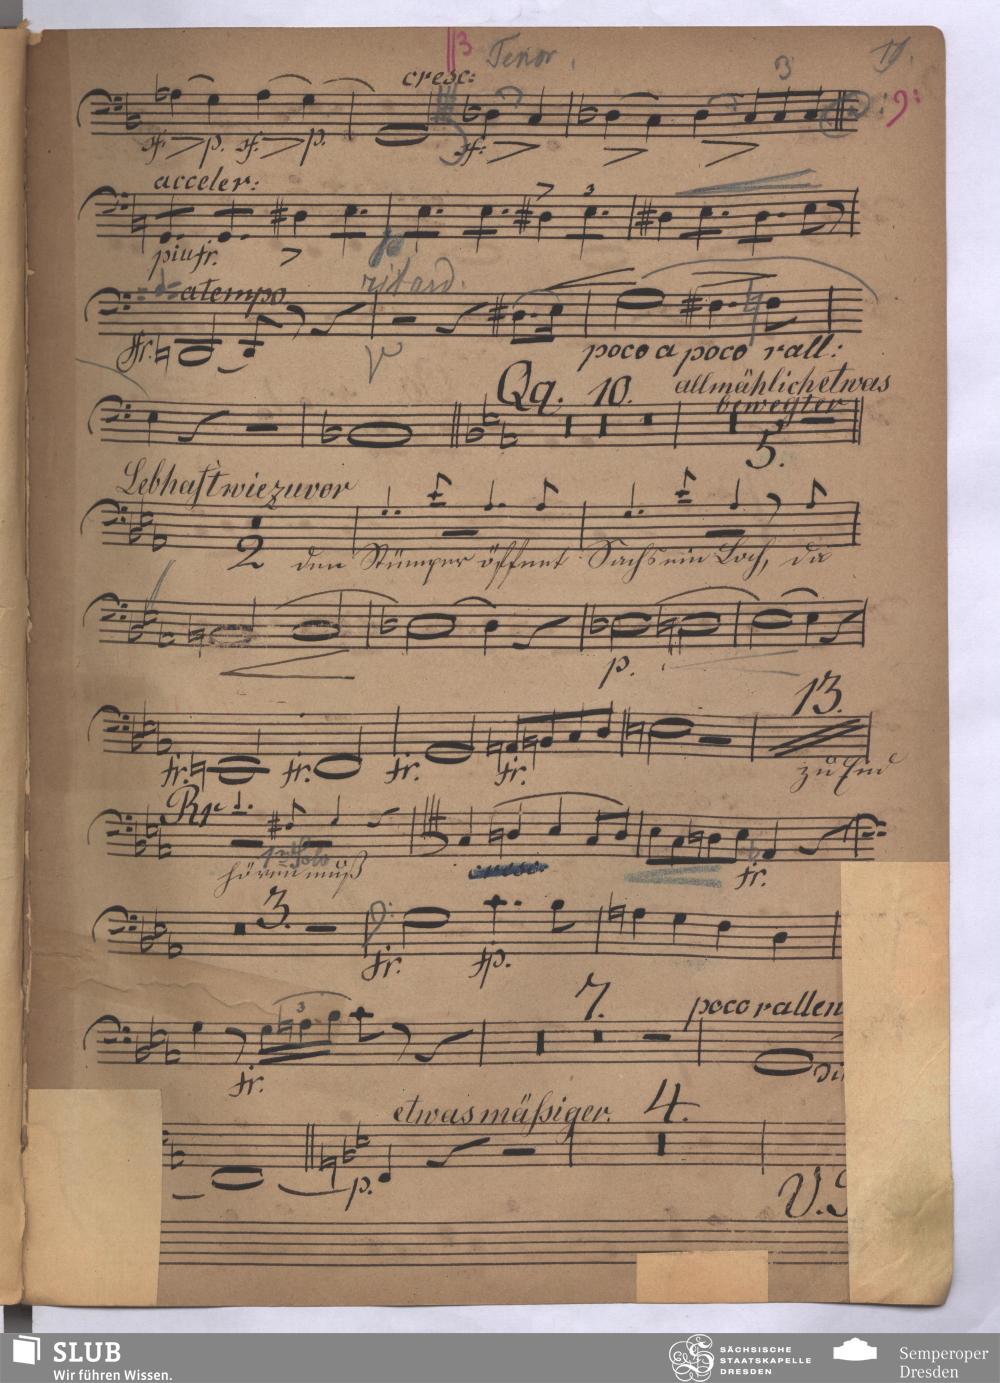 3 Tenor.
cresc:
3
sf. p. sf. p. sf:
acceler:
3
piu fr.
ritard.
a tempo
fr. poco a poco rall:
Qq. 10. allmählich etwas
bewegter
5.
Lebhaft wie zuvor
2 den Stümper öffnet Sachs ein Loch, da
p.
13.
fr. fr. fr. fr. zu End
Rr
1. Solo
hören muß
fr.
3.
fr. fp.
7. poco rallen
3
fr.
etwas mäßiger. 4.
p.
V.S
SLUB
Wir führen Wissen.
SÄCHSISCHE
STAATSKAPELLE
DRESDEN
Semperoper
Dresden